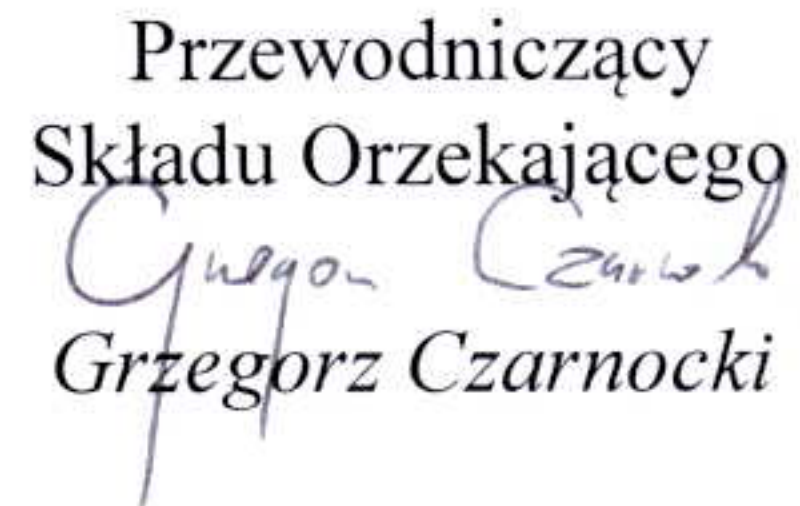 Przewodniczący
Składu Orzekającego
Grzegorz Czarnocki
Grzegorz Czarnocki